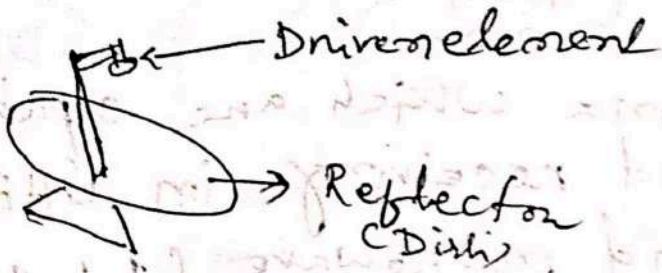 Driven element
Reflector
(Dish)